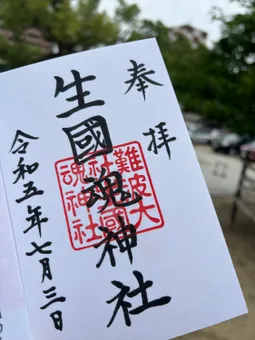 奉拝
生國魂神社
令和五年七月三日
難波大
社 國
魂神社